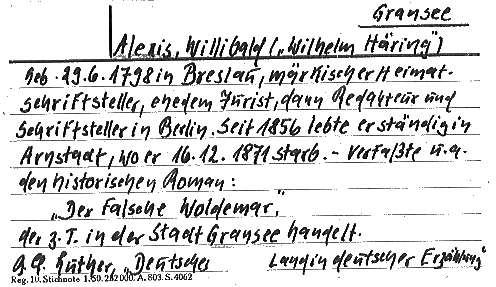 Gransee
Alexis, Willibald („Wilhelm Häring")
Geb. 29.6.1798 in Breslau, märkischer Heimat-
schriftsteller, ehedem Jurist, dann Redakteur und
Schriftsteller in Berlin. Seit 1856 lebte er ständig in
Arnstadt, wo er 16.12.1871 starb. - Verfaßte u.a.
den historischen Roman:
„Der falsche Woldemar,"
der z.T. in der Stadt Gransee handelt.
Luther, „Deutsches Land in deutscher Erzählung"
Reg. 10. Stichnote 1.50. 282000. A. 803. S. 4062